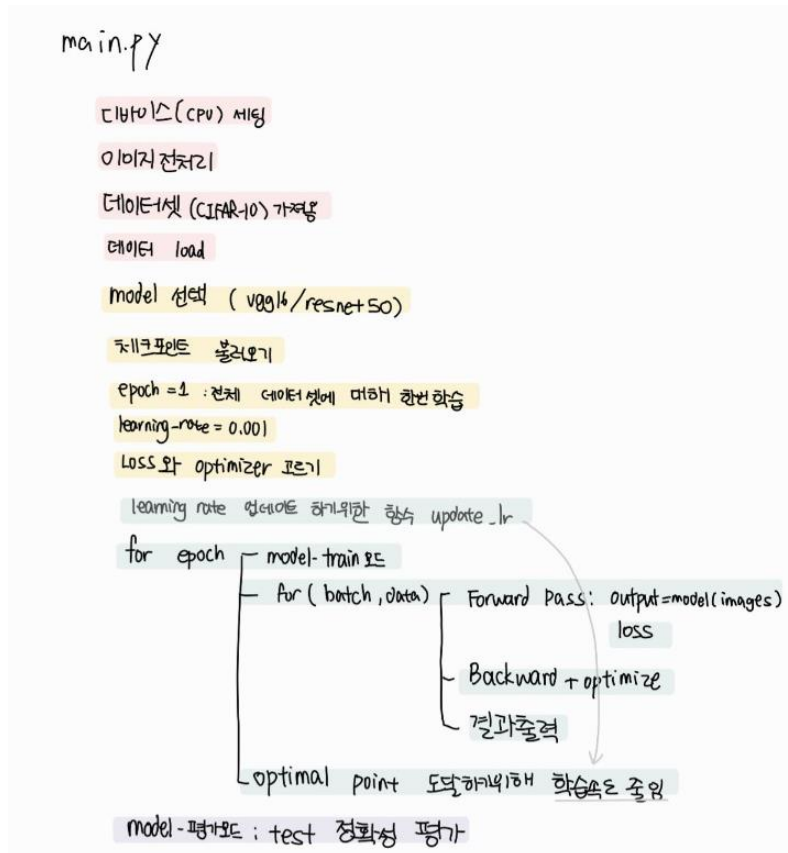 main.py
디바이스(CPU) 세팅
이미지 전처리
데이터셋 (CIFAR-10) 가져옴
데이터 load
model 선택 ( vgg16/resnet50)
체크포인트 불러오기
epoch =1 : 전체 데이터셋에 대해 한번 학습
learning-rate = 0.001
Loss와 optimizer 고르기
learning rate 업데이트 하기위한 함수 update_lr
for epoch model-train 모드
for ( batch , data) Forward pass: output=model(images)
loss
Backward + optimize
결과출력
optimal point 도달하기위해 학습속도 줄임
model-평가모드 ; test 정확성 평가